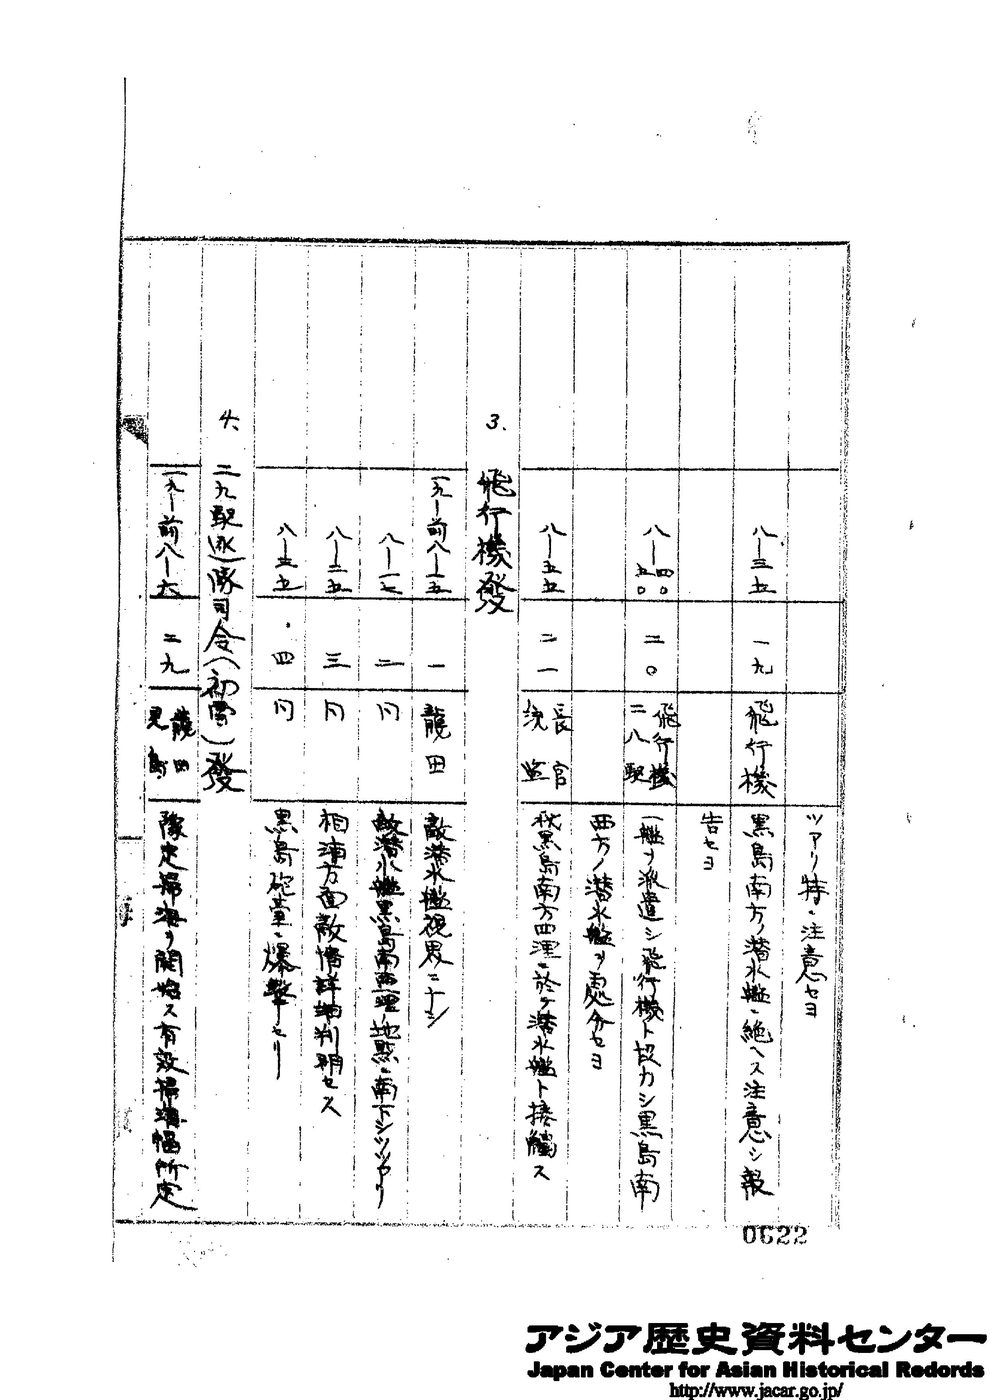 ツアリ特ニ注意セヨ
八―三五 一九 飛行機 黒島南方ノ潜水艦ニ絶ヘス注意シ報
告セヨ
八―四〇 五〇 二〇 飛行機 二八駆 一艦ヲ派遣シ飛行機ト協力シ黒島南
西方ノ潜水艦ヲ處分セヨ
八―五五 二一 長官 統監 我黒島南方四浬ニ於テ潜水艦ト接觸ス
3. 飛行機發
一九―前八―一五 一 龍田 敵潜水艦視界ニナシ
八―一七 二 同 敵潜水艦黒島南西浬ノ地點ニ南下シツツアリ
八―二五 三 同 相浦方面敵情詳細判明セス
八―三五 四 同 黒島砲臺ニ爆撃セリ
4、 二九駆(水)隊司令(初雪)發
一九―前八―一六 二九 龍田 見島 豫定掃海ヲ開始ス有效掃海幅所定
0622
アジア歴史資料センター
Japan Center for Asian Historical Records
http://www.jacar.go.jp/